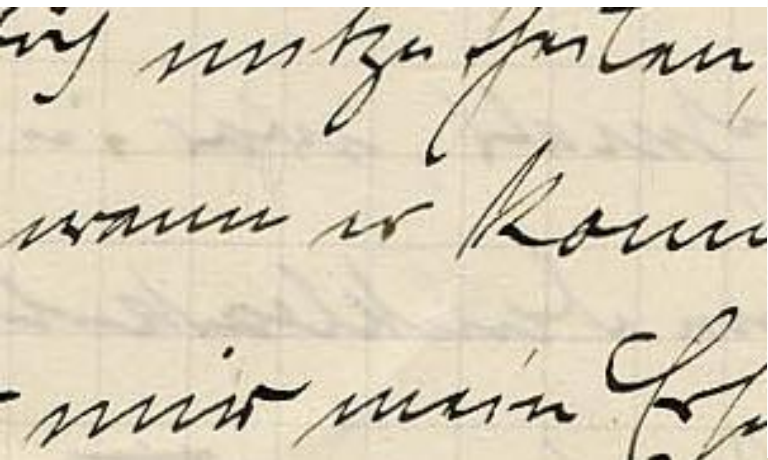 mitzutheilen,
wann er komm
mir mein